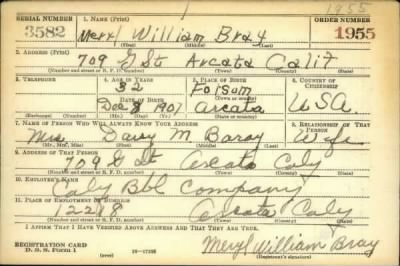 1955
SERIAL NUMBER 1. NAME (Print) ORDER NUMBER
3582 Meryl William Bray 1955
(First) (Middle) (Last)
2. ADDRESS (Print)
709 G St Arcata Calif
(Number and street or R. F. D. number) (Town) (County) (State)
3. TELEPHONE 4. AGE IN YEARS 5. PLACE OF BIRTH 6. COUNTRY OF CITIZENSHIP
32 Folsom
DATE OF BIRTH
Dec 190 Arcata USA
(Exchange) (Number) (Mo.) (Day) (Yr.) (State or country)
7. NAME OF PERSON WHO WILL ALWAYS KNOW YOUR ADDRESS 8. RELATIONSHIP OF THAT PERSON
Mrs Daisy M Baray Wife
(Mr., Mrs., Miss) (First) (Middle) (Last)
9. ADDRESS OF THAT PERSON
709 G St Arcata Caly
(Number and street or R. F. D. number) (Town) (County) (State)
10. EMPLOYER'S NAME
Caly Bbl Company
11. PLACE OF EMPLOYMENT OR BUSINESS
Arcata Caly
(Number and street or R. F. D. number) (Town) (County) (State)
I AFFIRM THAT I HAVE VERIFIED ABOVE ANSWERS AND THAT THEY ARE TRUE.
REGISTRATION CARD
D. S. S. Form 1 (over) Meryl William Bray
(Registrant's signature)